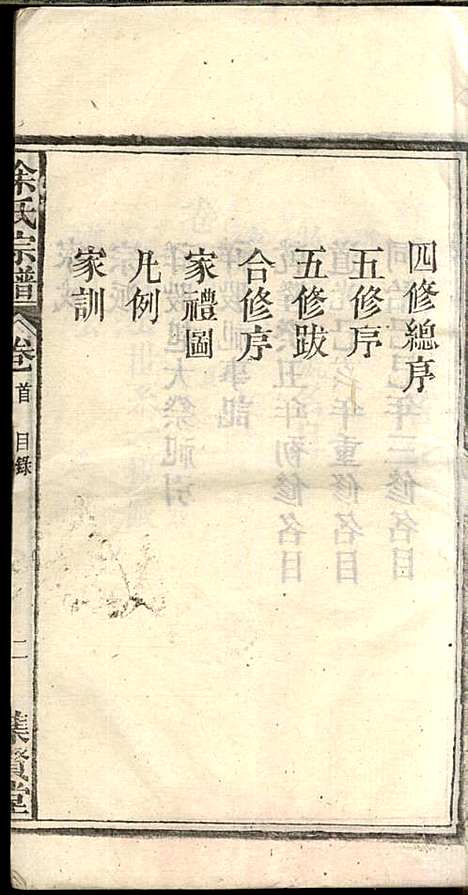 四修總序
五修序
五修跋
合修序
家禮圖
凡例
家訓
余氏宗譜 卷首 目錄 二 集賢堂